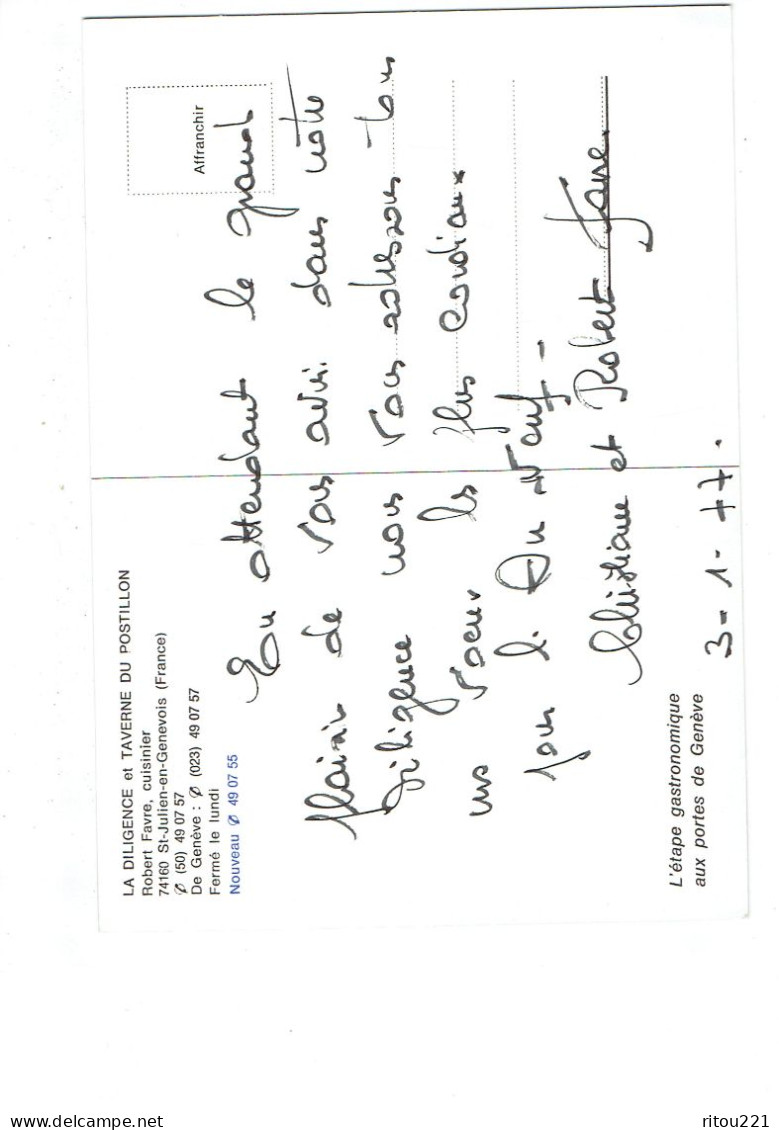 LA DILIGENCE et TAVERNE DU POSTILLON
Robert Favre, cuisinier
74160 St-Julien-en-Genevois (France)
✆ (50) 49 07 57
De Genève : ✆ (023) 49 07 57
Fermé le lundi
Nouveau ✆ 49 07 55
Affranchir
En attendant le grand
plaisir de vous avoir dans notre
Diligence nous vous adressons tous
nos voeux les plus cordiaux
pour l'An Neuf -
Christiane et Robert Favre.
3 - 1 - 77.
L'étape gastronomique
aux portes de Genève
ritou221